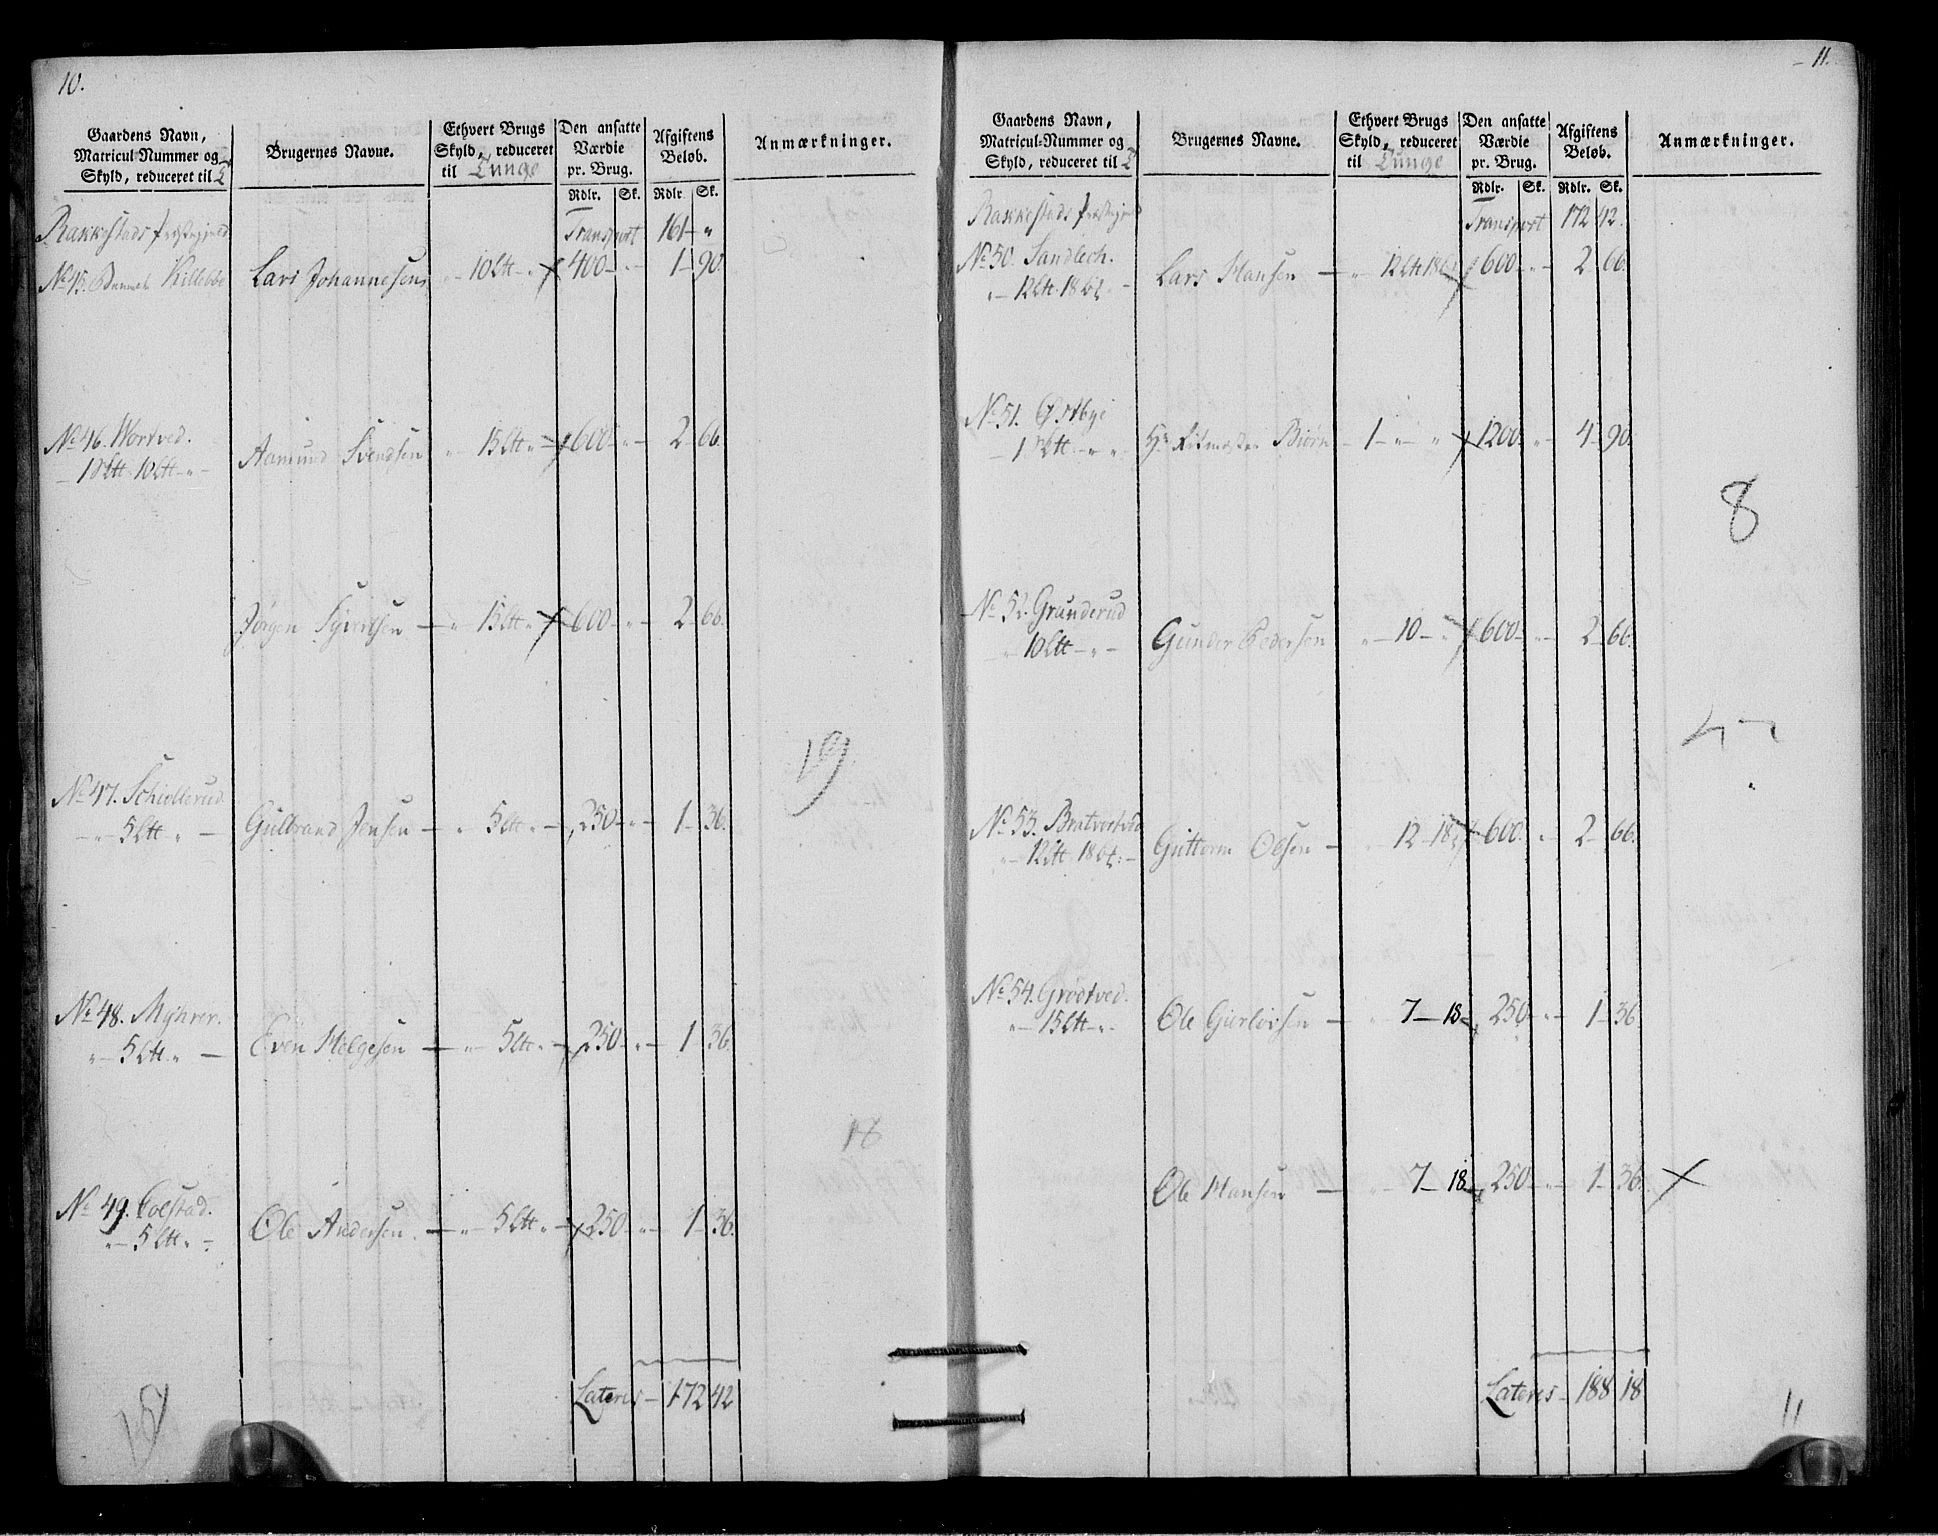 10.
Gaardens Navn, Matricul-Nummer og Skyld, reduceret til
Brugernes Navne.
Ethvert Brugs Skyld, reduceret til Tunge
Den ansatte Værdie pr. Brug.
Afgiftens Beløb.
Anmærkninger.
Rdlr. Sk. Rdlr. Sk.
Rakkestads Præstegield Transport 161 "
No 45. Killebbe Lars Johannesen " 10 Ltt " 400 " 1 90.
No 46. Wortved. Aamund Svendsen " 15 Ltt " 600 " 2 66.
10 Ltt "
Jørgen Syvertsen " 15 Ltt " 600 " 2 66.
No 47. Schiollerud.
" 5 Ltt " Gulbrand Jensen " 5 Ltt " 250 " 1 36.
19
No 48. Myhrer.
" 5 Ltt " Even Helgesen " 5 Ltt " 250 " 1 36.
18
No 49. Colstad.
" 5 Ltt " Ole Andersen. " 5 Ltt " 250 " 1 36.
Lateris 172 42
11.
Gaardens Navn, Matricul-Nummer og Skyld, reduceret til
Brugernes Navne.
Ethvert Brugs Skyld, reduceret til Tunge
Den ansatte Værdie pr. Brug.
Afgiftens Beløb.
Anmærkninger.
Rdlr. Sk. Rdlr. Sk.
Rakkestads Præstegield Transport 172 42.
No 50. Sandlech. Lars Hansen " 12 Ltt 18 600 " 2 66.
" 12 Ltt. 18
No 51. Østbye
1 " " Hr. Ritmester Biørn 1 " " 1200 " 4 90.
8
No 52. Grunderud
" 10 Ltt " Gunder Pedersen " 10 " 600 " 2 66.
No 53. Bratvortved
" 12 Ltt. 18 Guttorm Olsen " 12 18 600 " 2 66.
No 54. Grødtved.
" 15 Ltt " Ole Gierløvsen " 7 18 250 " 1 36
Ole Hansen " 7 18 250 " 1 36 X
Lateris 188 18
11